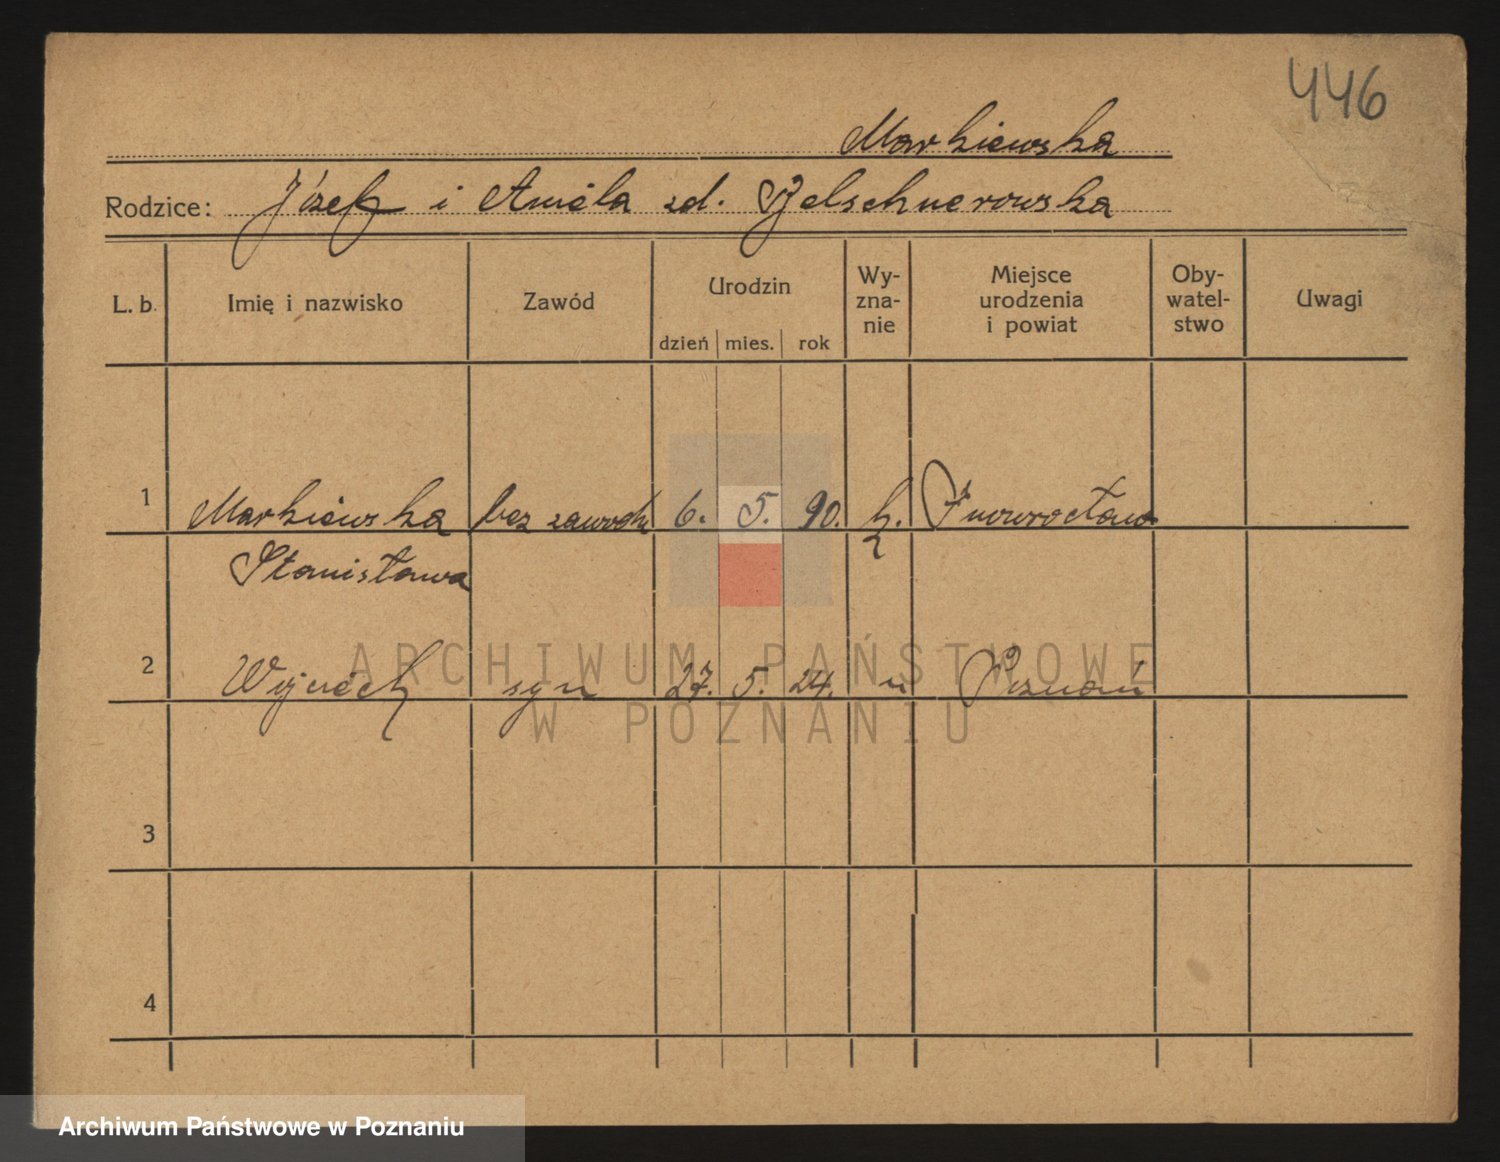 446
Markiewska
Rodzice: Józef i Amela zd. Jelschnerowska
L. b. Imię i nazwisko Zawód Urodzin dzień mies. rok Wy-zna-nie Miejsce urodzenia i powiat Oby-watel-stwo Uwagi
1 Markiewska bez zawodu 6. 5. 90. k. Inowrocław
Stanisława
2 Wojciech syn 27. 5. 24. " Poznań
3
4
ARCHIWUM PAŃSTWOWE
W POZNANIU
Archiwum Państwowe w Poznaniu